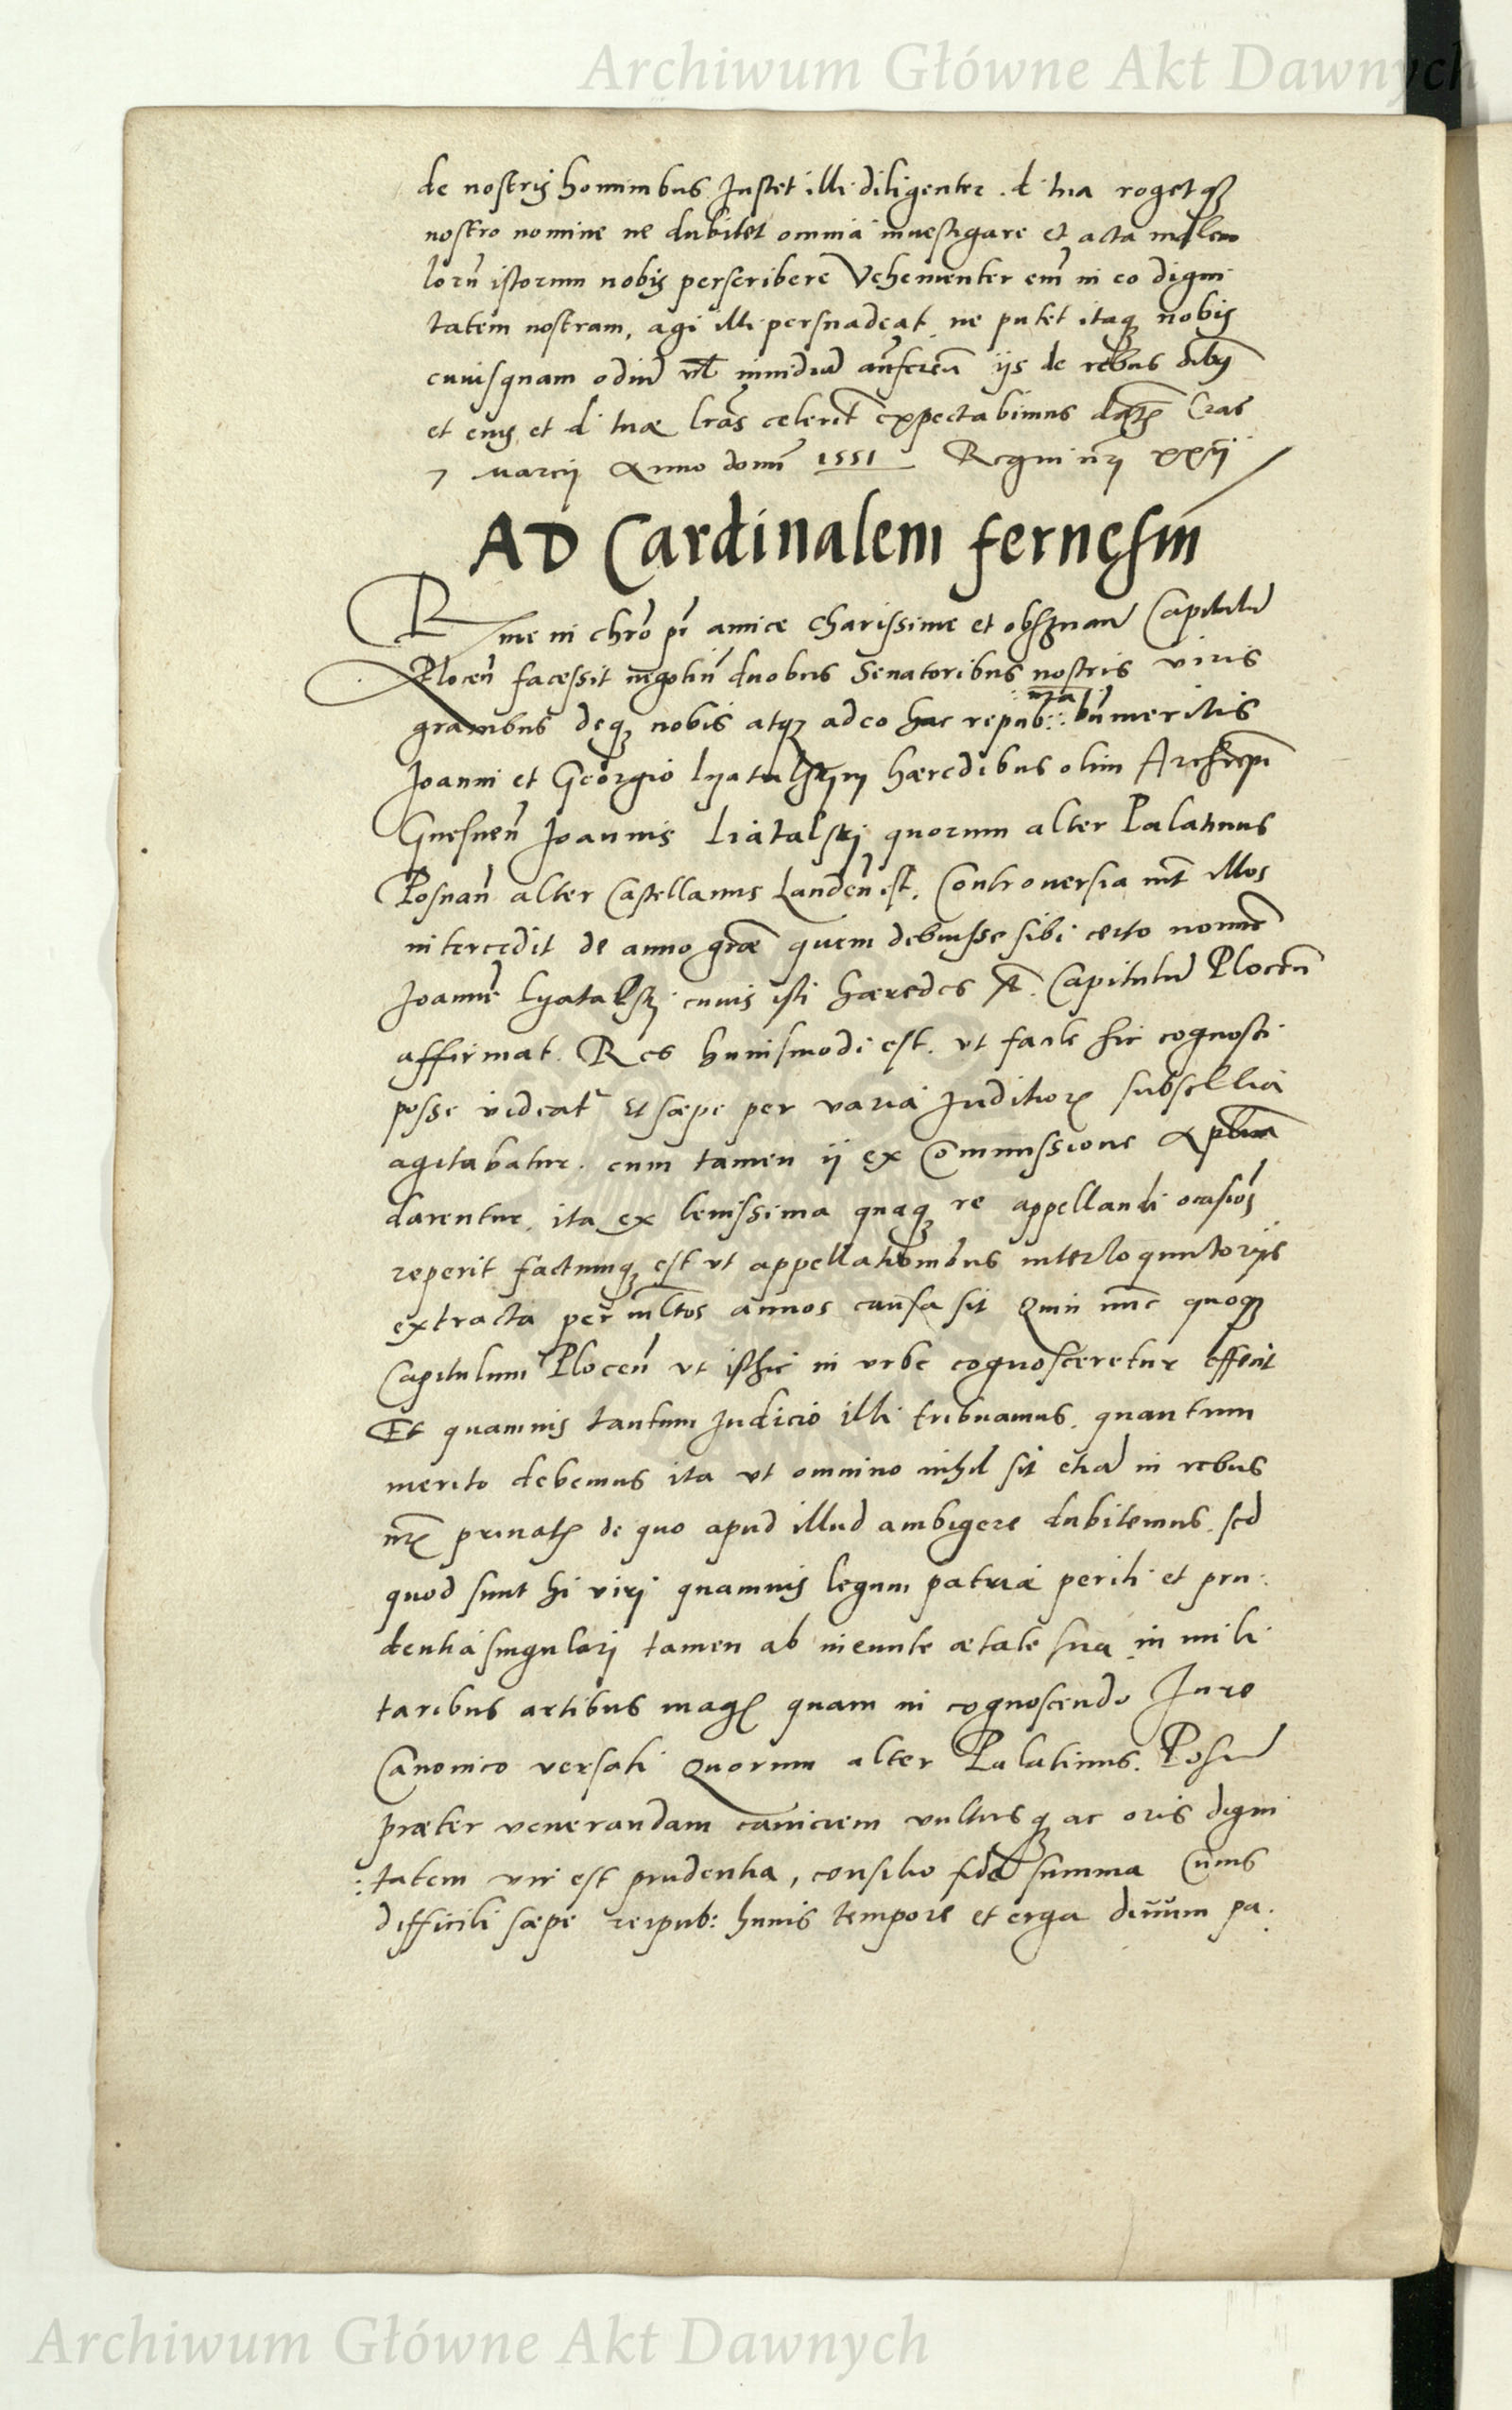 Archiwum Główne Akt Dawnych
de nostris hominibus Instet illi diligenter. d. tua rogetq3
nostro nomine ne dubitet omnia inuestigare et acta
lorū istorum nobis perscribere Vehementer em̄ in eo digni
tatem nostram, agi illi persuadeat, ne putet itaq3 nobis
cuiusquam odiū vl̄ inuidiā iis de rebus
et eius et d. tuae lr̄as celerit̄ expectabimus Cras
7 Marcii Anno domī 1551 Regni nr̄i
AD Cardinalem fernesiū
Rme in chr̄o pr̄ amice charissime et Capitulū
Plocēn facessit negotiū duobus Senatoribus nostris viris
grauibus deq3 nobis atq3 adeo hac repub: nr̄a bn̄meritis
Joanni et Georgio haeredibus olim Archiepī
Gnesnēn Joannis Liatalski quorum alter Palatinus
Posnāń alter Castellanus Landēn est. Controuersia int̄ illos
intercedit de anno gr̄ae quem debuisse sibi certo nomīe
Joannē Lyatalski cuius isti haeredes st̄. Capitulū Plocēn
affirmat. Res huiusmodi est. vt facile hic cognosci
posse videat̄ Et saepe per varia Juditior̄ subsellia
agitabatur. cum tamen ii ex Commissione
darentur, ita ex leuissima quaq3 re appellandi ocasiōē
reperit factumq3 est vt appellationibus interloquutoriis
extracta per ml̄tos annos causa sit Quin nūc quoq3
Capitulum Plocēn vt isthic in vrbe cognosceretur effecit
Et quamuis tantum Judicio illi tribuamus, quantum
merito debemus ita vt omnino nihil sit etiā in rebus
nr̄is priuatis de quo apud illud ambigere dubitemus. sed
quod sunt hi viri quamuis legum patriae periti et pru:
dentia singulari tamen ab ineunte aetate sua in mili
taribus artibus magis quam in cognoscendo Jure
Canonico versati Quorum alter Palatinus. Posnā
praeter venerandam caniciem vultusq3 ac oris digni
:tatem vir est prudentia, consilio fide summa Cuius
difficili saepe reipub: huius tempore et erga diuum pa.
Archiwum Główne Akt Dawnych